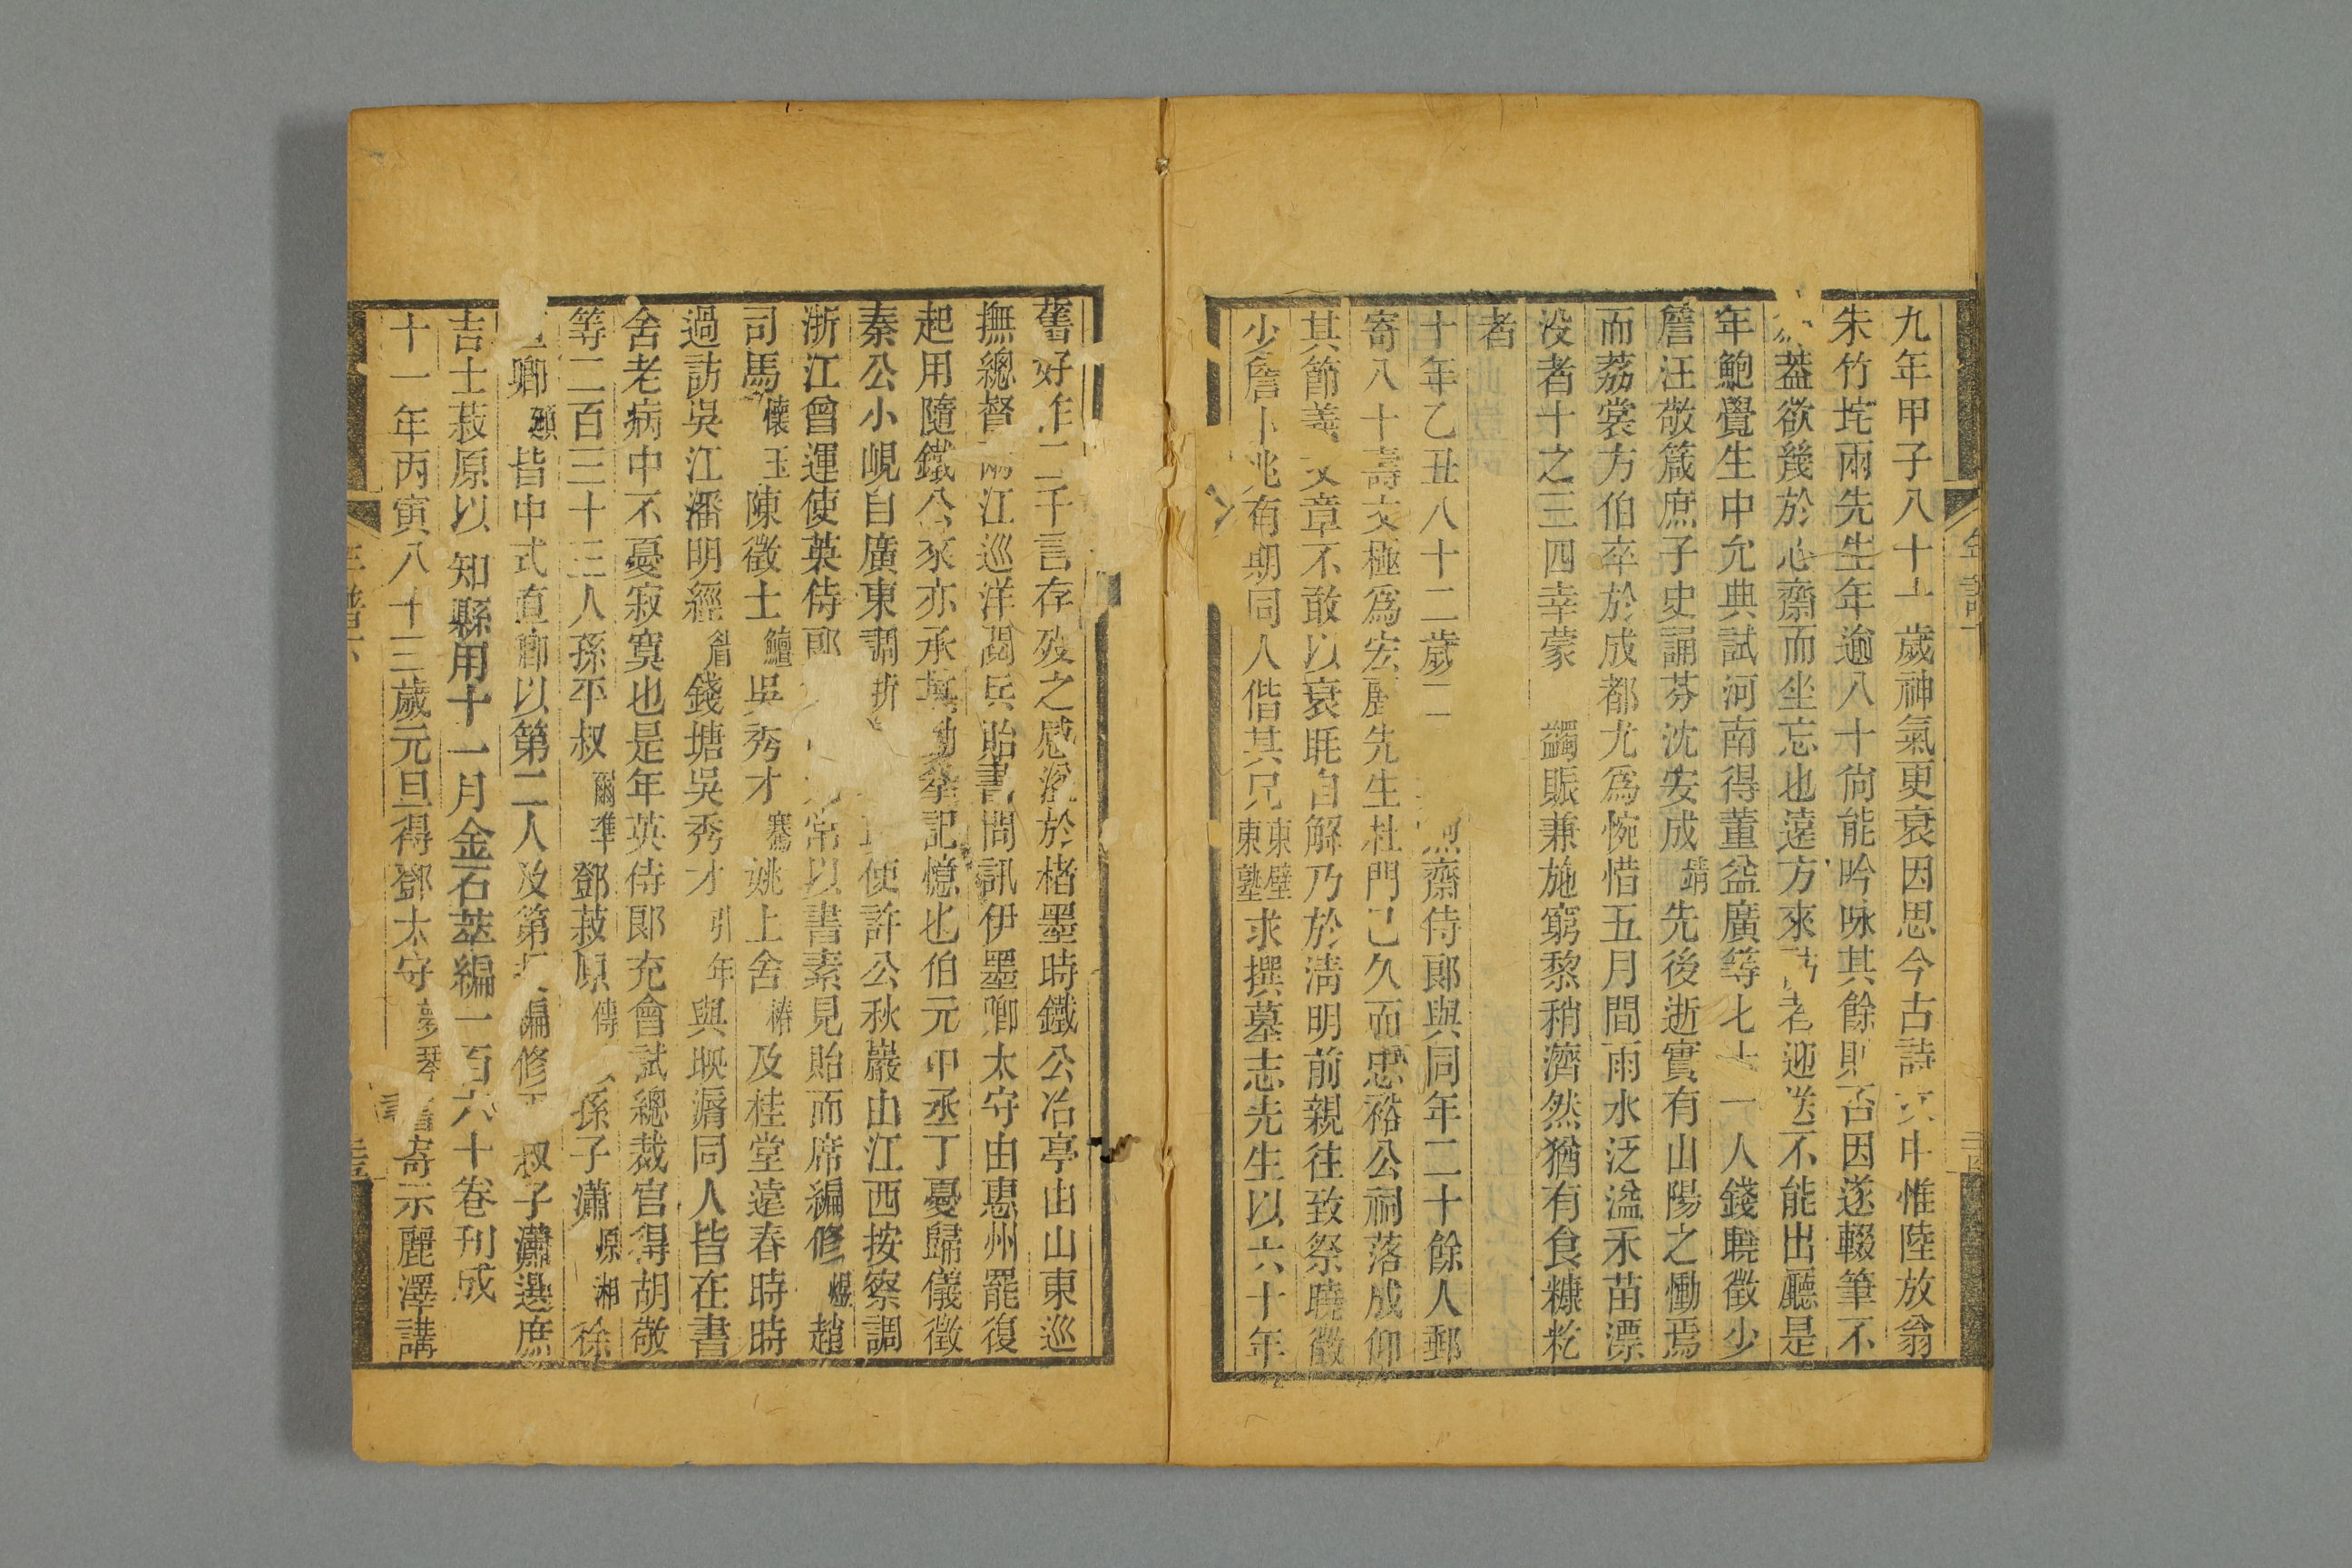 九年甲子八十一歲神氣更衰因思今古詩文中惟陸放翁
朱竹垞兩先生年逾八十尙能吟咏其餘則否因遂輟筆不
蓋欲幾於心齋而坐忘也遠方來者迎送不能出廳是
年鮑覺生中允典試河南得董盆廣等七十一人錢曉徵少
詹汪敬箴庶子史誦芬沈安成靖先後逝實有山陽之慟焉
而荔裳方伯卒於成都尤爲惋惜五月間雨水泛溢禾苗漂
没者十之三四幸蒙蠲賑兼施窮黎稍濟然猶有食糠籺
者
十年乙丑八十二歲二齋侍郎與同年二十餘人郵
寄八十壽文極爲宏麗先生杜門己久而忠裕公祠落成仰
其節義文章不敢以衰眊自解乃於淸明前親往致祭曉徵
少詹卜兆有期同人偕其兄東壁東塾求撰墓志先生以六十年
舊好作二千言存歿之感深於楮墨時鐵公冶亭由山東巡
撫總督兩江巡洋閱兵貽書問訊伊墨卿太守由惠州罷復
起用隨鐵公來亦承其勤拳記憶也伯元中丞丁憂歸儀徵
秦公小峴自廣東調浙使許公秋巖由江西按察調
浙江曾運使英侍郎常以書素見貽而席編修煜趙
司馬懷玉陳徵士鱣吳秀才騫姚上舍椿及桂堂遠春時時
過訪吳江潘明經眉錢塘吳秀才引年與映漘同人皆在書
舍老病中不憂寂寞也是年英侍郎充會試總裁官得胡敬
等二百三十三人孫平叔爾準鄧菽原傳孫子瀟原湘徐
卿頲皆中式直卿以第二人及第授編修平叔子瀟選庶
吉士菽原以知縣用十一月金石萃編一百六十卷刊成
十一年丙寅八十三歲元旦得鄧太守夢琴書寄示麗澤講